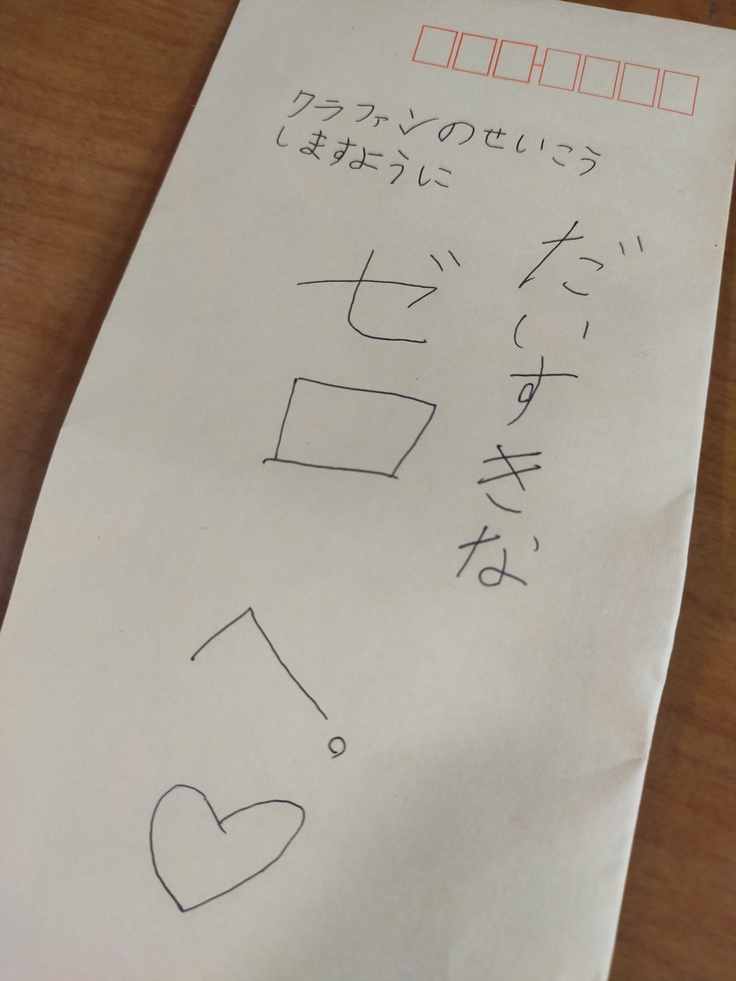 クラファンのせいこう
しますように
だいすきな
ゼロ
へ。